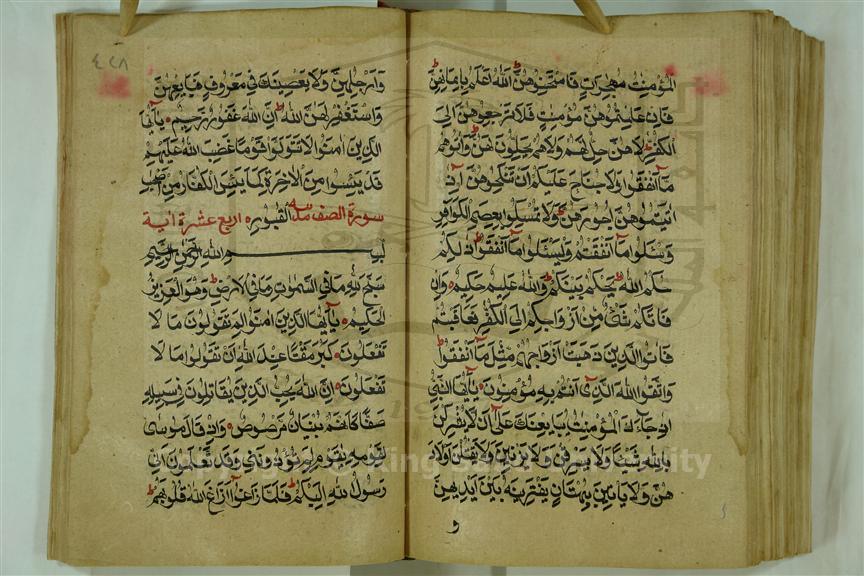 المؤمنت مهجرت فامتحنوهن الله اعلم بايمانهن
فان علمتموهن مؤمنت فلا ترجعوهن الى
الكفار لا هن حل لهم ولا هم يحلون لهن واتوهم
ما انفقوا ولا جناح عليكم ان تنكحوهن اذا
اتيتموهن اجورهن ولا تمسكوا بعصم الكوافر
وسئلوا ما انفقتم وليسئلوا ما انفقوا ذلكم
حكم الله يحكم بينكم والله عليم حكيم وان
فاتكم شئ من ازواجكم الى الكفار فعاقبتم
فاتوا الذين ذهبت ازواجهم مثل ما انفقوا
واتقوا الله الذى انتم به مؤمنون يايها النبى
اذا جاءك المؤمنت يبايعنك على ان لا يشركن
بالله شيئا ولا يسرقن ولا يزنين ولا يقتلن اولاد
هن ولا ياتين ببهتان يفترينه بين ايديهن
و
٤٢٨
وارجلهن ولا يعصينك فى معروف فبايعهن
واستغفر لهن الله ان الله غفور رحيم يايها
الذين امنوا لا تتولوا قوما غضب الله عليهم
قد يئسوا من الاخرة كما يئس الكفار من اصحب
سورة الصف مدنية القبور اربع عشرة اية
بسم الله الرحمن الرحيم
سبح لله ما فى السموت وما فى الارض وهو العزيز
الحكيم يايها الذين امنوا لم تقولون ما لا
تفعلون كبر مقتا عند الله ان تقولوا ما لا
تفعلون ان الله يحب الذين يقاتلون فى سبيله
صفا كانهم بنيان مرصوص واذ قال موسى
لقومه يقوم لم تؤذوننى وقد تعلمون انى
رسول الله اليكم فلما زاغوا ازاغ الله قلوبهم